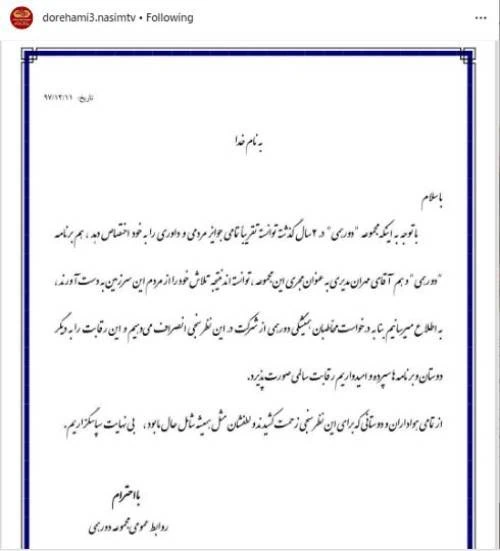 dorehami3.nasimtv • Following
تاریخ: ۹۷/۱۲/۱۱
به نام خدا
باسلام
با توجه به اینکه مجموعه "دورهمی" در ۲ سال گذشته توانسته تقریبا تمامی جوایز مردمی و داوری را به خود اختصاص دهد ، هم برنامه
"دورهمی" و هم آقای مهران مدیری به عنوان مجری این مجموعه ، توانسته اند نتیجه تلاش خود را از مردم این سرزمین به دست آورند ،
به اطلاع میرسانیم بنا به درخواست مخاطبان همیشگی دورهمی از شرکت در این نظرسنجی انصراف می دهیم و این رقابت را به دیگر
دوستان و برنامه ها سپرده و امیدواریم رقابت سالمی صورت پذیرد.
از تمامی هواداران و دوستانی که برای این نظرسنجی زحمت کشیدند و لطفشان مثل همیشه شامل حال ما بود ، بی نهایت سپاسگزاریم.
با احترام
روابط عمومی مجموعه دورهمی